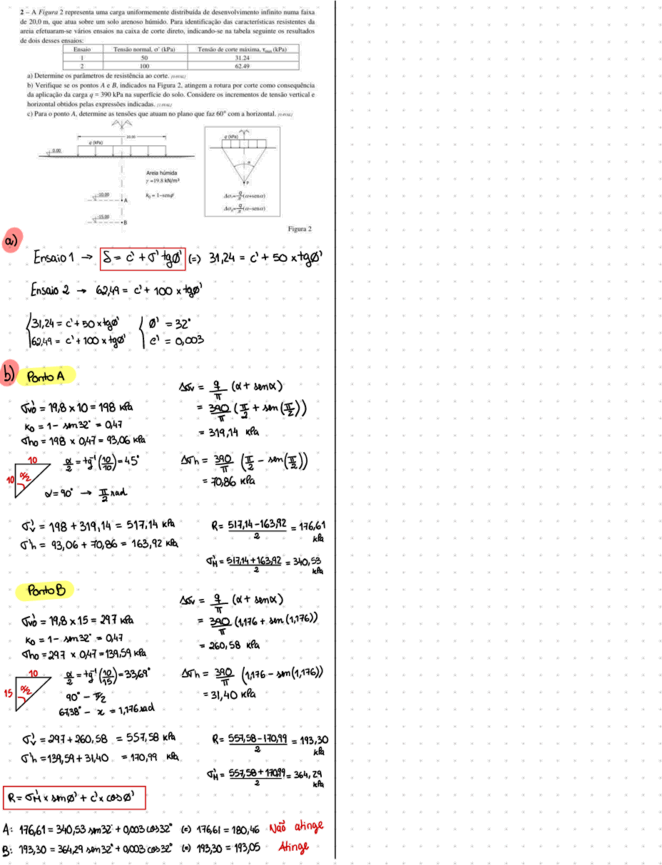 2 – A Figura 2 representa uma carga uniformemente distribuída de desenvolvimento infinito numa faixa
de 20,0 m, que atua sobre um solo arenoso húmido. Para identificação das características resistentes da
areia efetuaram-se vários ensaios na caixa de corte direto, indicando-se na tabela seguinte os resultados
de dois desses ensaios:
Ensaio Tensão normal, σ' (kPa) Tensão de corte máxima, τmax (kPa)
1 50 31.24
2 100 62.49
a) Determine os parâmetros de resistência ao corte.
b) Verifique se os pontos A e B, indicados na Figura 2, atingem a rotura por corte como consequência
da aplicação da carga q = 390 kPa na superfície do solo. Considere os incrementos de tensão vertical e
horizontal obtidos pelas expressões indicadas.
c) Para o ponto A, determine as tensões que atuam no plano que faz 60° com a horizontal.
q (kPa)
Areia húmida
γ =19.8 kN/m³
k₀ = 1-senφ'
A
B
q (kPa)
α
Δσv=q/π(α+senα)
Δσh=q/π(α-senα)
Figura 2
a)
Ensaio 1 → δ = c' + σ' tgø' (=) 31,24 = c' + 50 x tgø'
Ensaio 2 → 62,49 = c' + 100 x tgø'
31,24 = c' + 50 x tgø' ø' = 32°
62,49 = c' + 100 x tgø' c' = 0,003
b) Ponto A
σv0' = 19,8 x 10 = 198 kPa
K0 = 1 - sen 32° = 0,47
σh0 = 198 x 0,47 = 93,06 kPa
10
10 α/2
α/2 = tg⁻¹(10/10) = 45°
α = 90° → π/2 rad
Δσv = q/π (α + senα)
= 390/π (π/2 + sen(π/2))
= 319,14 kPa
Δσh = 390/π (π/2 - sen(π/2))
= 70,86 kPa
σv' = 198 + 319,14 = 517,14 kPa
σ'h = 93,06 + 70,86 = 163,92 kPa
R = 517,14-163,92/2 = 176,61 kPa
σM' = 517,14 + 163,92/2 = 340,53 kPa
Ponto B
σv0' = 19,8 x 15 = 297 kPa
K0 = 1 - sen 32° = 0,47
σh0 = 297 x 0,47 = 139,59 kPa
10
15 α/2
α/2 = tg⁻¹(10/15) = 33,69°
90° - π/2
67,38° - x = 1,176 rad
Δσv = q/π (α + senα)
= 390/π (1,176 + sen(1,176))
= 260,58 kPa
Δσh = 390/π (1,176 - sen(1,176))
= 31,40 kPa
σv' = 297 + 260,58 = 557,58 kPa
σ'h = 139,59 + 31,40 = 170,99 kPa
R = 557,58-170,99/2 = 193,30 kPa
σM' = 557,58 + 170,99/2 = 364,29 kPa
R = σM' x senø' + c' x cosø'
A: 176,61 = 340,53 sen 32° + 0,003 cos 32° (=) 176,61 = 180,46 Não atinge
B: 193,30 = 364,29 sen 32° + 0,003 cos 32° (=) 193,30 = 193,05 Atinge